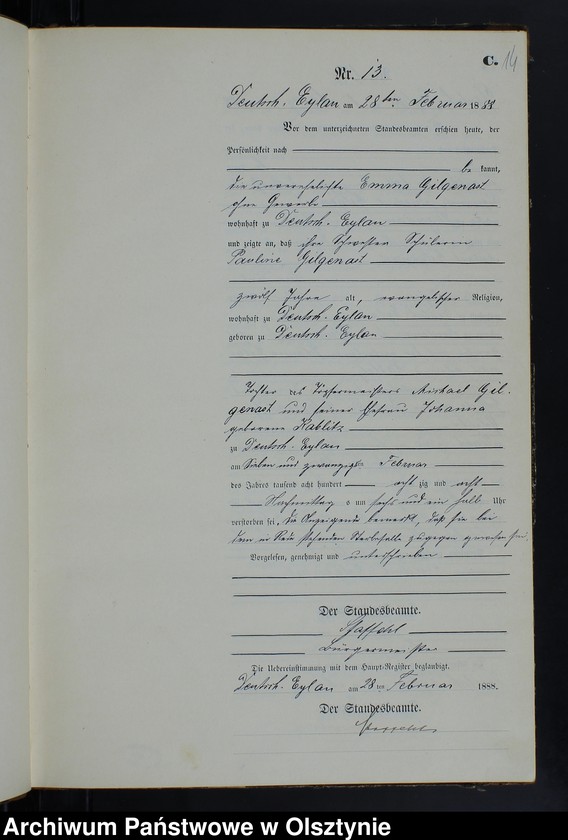 C. 14
Nr. 13.
Deutsch. Eylau am 28ten Februar 1888
Vor dem unterzeichneten Standesbeamten erschien heute, der
Persönlichkeit nach
be kannt,
die unverehelichte Emma Gilgenast
ohne Gewerbe
wohnhaft zu Deutsch. Eylau
und zeigte an, daß ihre Schwester Schülerin
Pauline Gilgenast
zwölf Jahre alt, evangelischer Religion,
wohnhaft zu Deutsch. Eylau
geboren zu Deutsch. Eylau
Tochter des Töpfermeisters Michael Gil-
genast und seiner Ehefrau Johanna
geborene Kablitz
zu Deutsch. Eylau
am Sieben und zwanzigsten Februar
des Jahres tausend acht hundert achtzig und acht
Nachmittags um sechs und ein halb Uhr
verstorben sei, die Anzeigende bemerkt, daß sie bei
dem in Rede stehenden Sterbefalle zugegen gewesen sei.
Vorgelesen, genehmigt und unterschrieben
Der Standesbeamte.
Bürgermeister
Die Uebereinstimmung mit dem Haupt-Register beglaubigt.
Deutsch. Eylau am 28ten Februar 1888.
Der Standesbeamte.
Archiwum Państwowe w Olsztynie